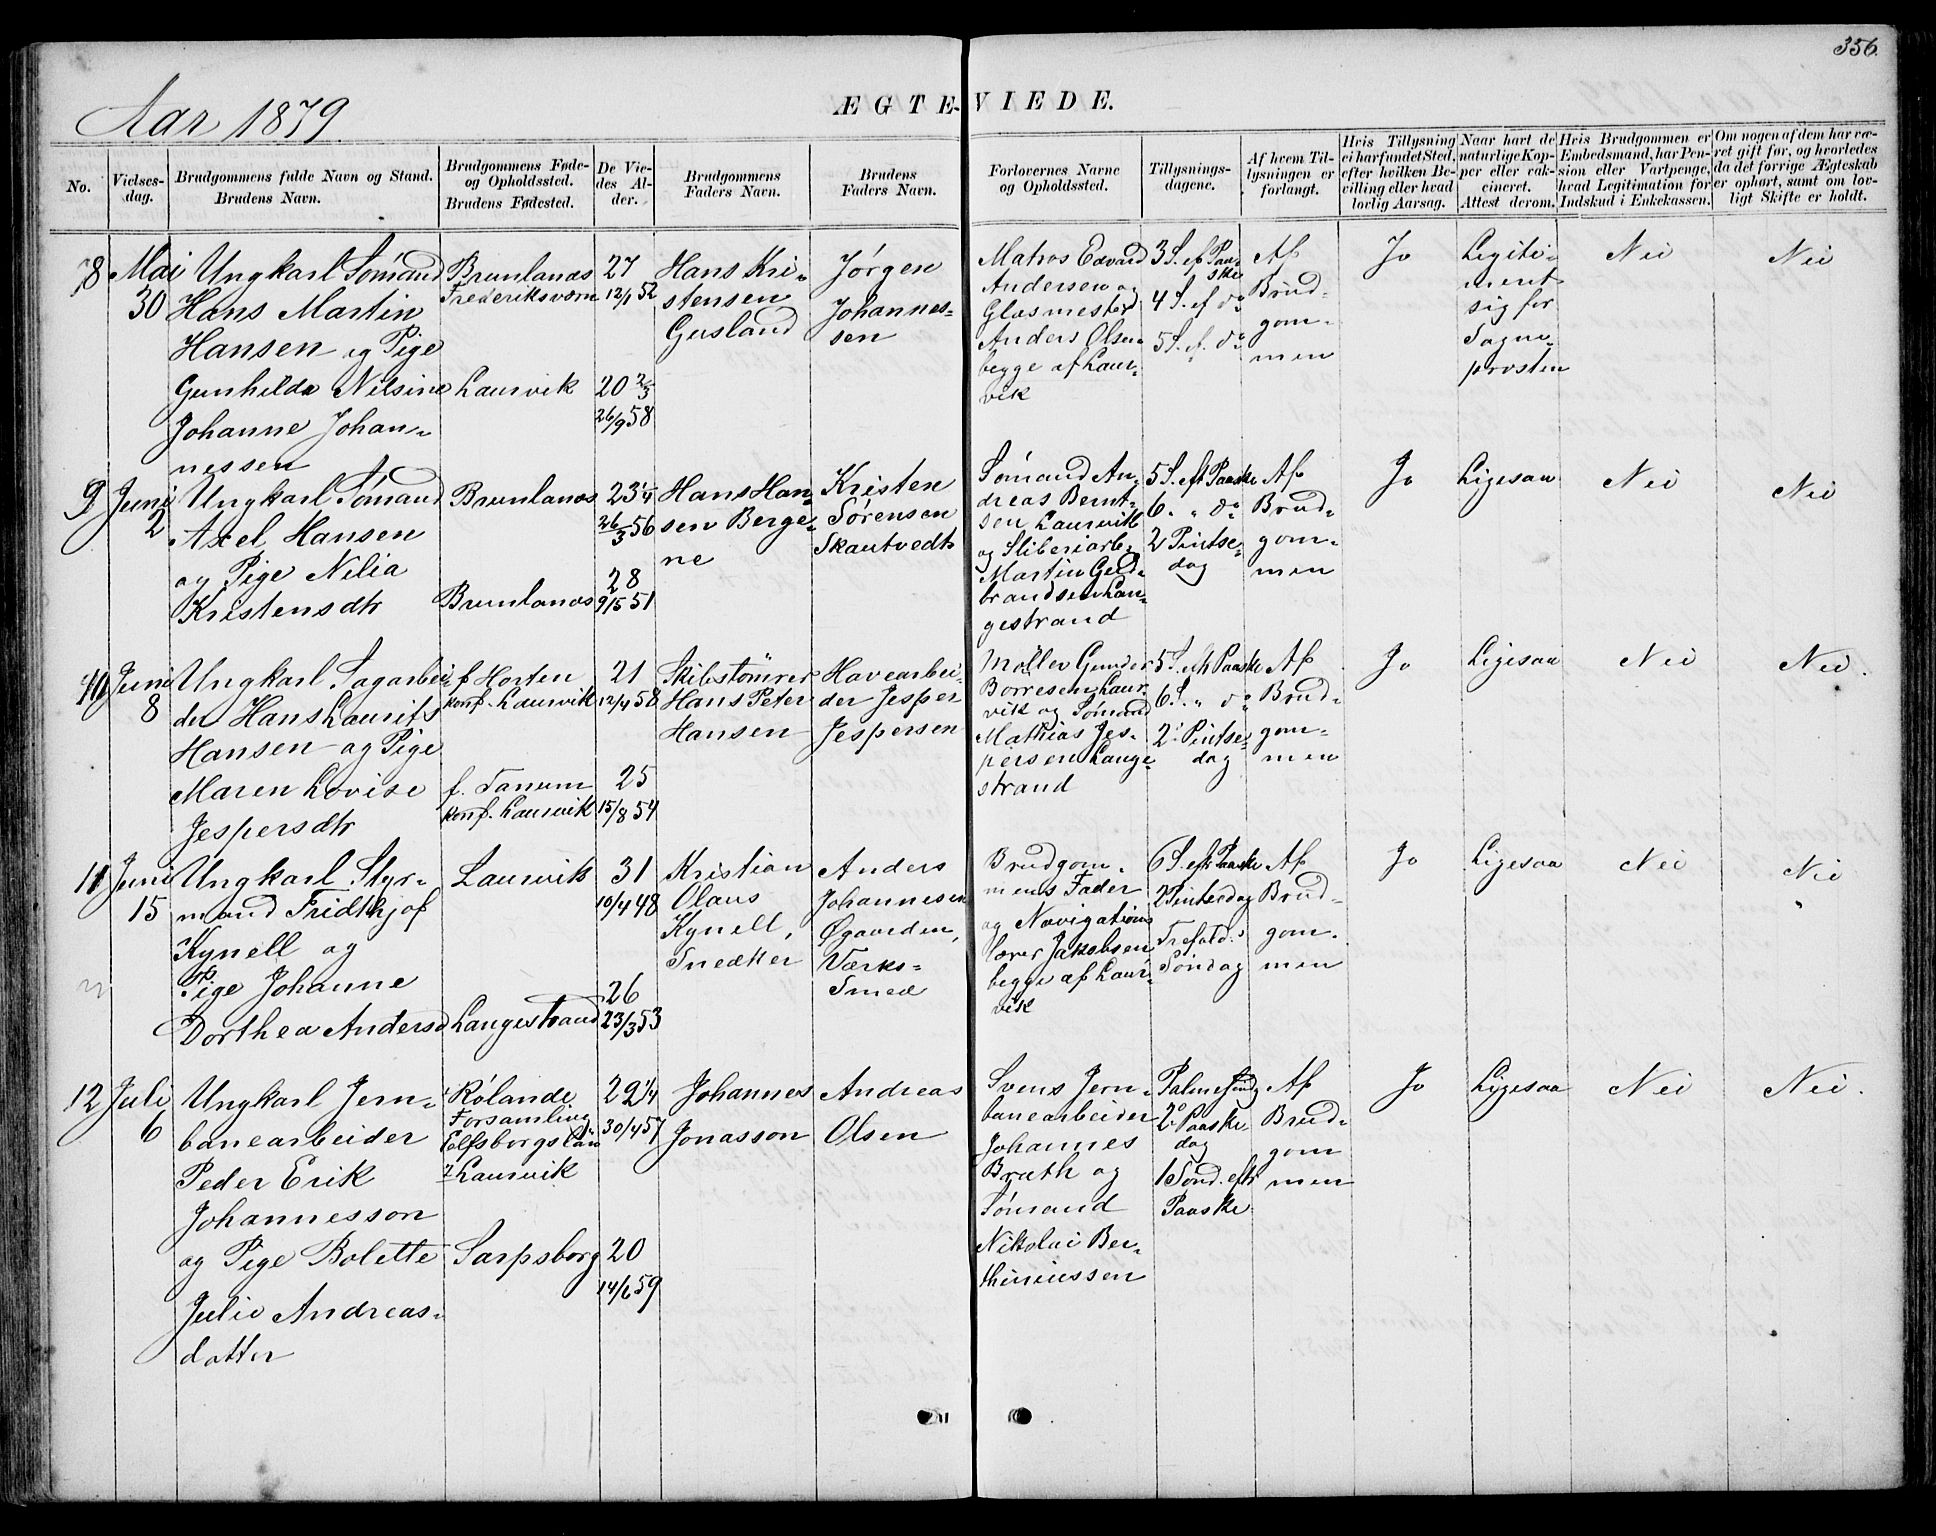 356.
Aar 1879.
ÆGTE-VIEDE.
No.
Vielses-
dag.
Brudgommens fulde Navn og Stand.
Brudens Navn.
Brudgommens Føde-
og Opholdssted.
Brudens Fødested.
De Vie-
des Al-
der.
Brudgommens
Faders Navn.
Brudens
Faders Navn.
Forlovernes Navne
og Opholdssted.
Tillysnings-
dagene.
Af hvem Til-
lysningen er
forlangt.
Hvis Tillysning
ei har fundet Sted,
efter hvilken Be-
villing eller hvad
lovlig Aarsag.
Naar havt de
naturlige Kop-
per eller vak-
cineret.
Attest derom.
Hvis Brudgommen er
Embedsmand, har Pen-
sion eller Vartpenge,
hvad Legitimation for
Indskud i Enkekassen.
Om nogen af dem har væ-
ret gift før, og hvorledes
da det forrige Ægteskab
er ophørt, samt om lov-
ligt Skifte er holdt.
8
Mai
30
Ungkarl Sømand
Hans Martin
Hansen og Pige
Gunhilda Nilsine
Johanne Johan-
nessen
Brunlanæs
Frederiksværn
Laurvik
27
12/1 52
20 2/3
26/9 58
Hans Kri-
stensen
Gusland
Jørgen
Johannes-
sen
Matros Edvard
Andersen og
Glasmester
Anders Olsen
begge af Laur-
vik
3 S. ef Paa-
ske
4 S. ef do
5 S. ef. do
Af
Brud-
gom-
men
Jo
Legiti-
meret
sig for
Sogne-
prosten
Nei
Nei
9
Juni
2
Ungkarl Sømand
Axel Hansen
og Pige Nilia
Kristensdtr
Brunlanæs
Brunlanæs
23 1/4
26/3 56
28
9/5 51
Hans Han-
sen Berge-
ne
Kristen
Sørensen
Skautvedt
Sømand An-
dreas Bernt-
sen Laurvik
og Sliberiarb.
Martin Guld-
brandsen Lan-
gestrand
5 S. eft Paaske
6 " do
2 Pintse-
dag
Af
Brud-
gom-
men
Jo
Ligesaa
Nei
Nei
10
Juni
8
Ungkarl Sagarbei-
der Hans Laurits
Hansen og Pige
Maren Lovise
Jespersdtr
f. Horten
konf. Laurvik
f. Tanum
konf. Laurvik
21
12/4 58
25
15/8 54
Skibstømrer
Hans Peter
Hansen
Havearbei-
der Jesper
Jespersen
Møller Gunder
Borresen Laur-
vik og Sømand
Mathias Jes-
persen Lange-
strand
5 S. eft Paaske
6 S. " do
2 Pintse-
dag
Af
Brud-
gom-
men
Jo
Ligesaa
Nei
Nei.
11
Juni
15
Ungkarl Styr-
mand Fridthjof
Kynell og
Pige Johanne
Dorthea Andersd
Laurvik
Langestrand
31
10/4 48
26
23/3 53
Kristian
Olaus
Kynell,
Snedker
Anders
Johannesen
Øgaarden,
Værks-
Smed
Brudgom-
mens Fader
og Navigations
lærer Jakobsen
begge af Laur-
vik
6 S. eft Paaske
2 Pintsedag
Trefold.s
Søndag
Af
Brud-
gom-
men
Jo
Ligesaa
Nei
Nei
12
Juli
6
Ungkarl Jern-
banearbeider
Peder Erik
Johannesson
og Pige Bolette
Julie Andreas-
datter
Rölanda
Forsamling
Elfsborgslän
Laurvik
Sarpsborg
29 1/4
30/4 57
20
14/6 59
Johannes
Jonasson
Andreas
Olsen
Svens Jern-
banearbeider
Johannes
Brath og
Sømand
Nikolai Ber-
thiniussen
Palmesønd
2 Paaske
dag
1 Sønd. eftr
Paaske
Af
Brud-
gom
men
Jo
Ligesaa
Nei
Nei.